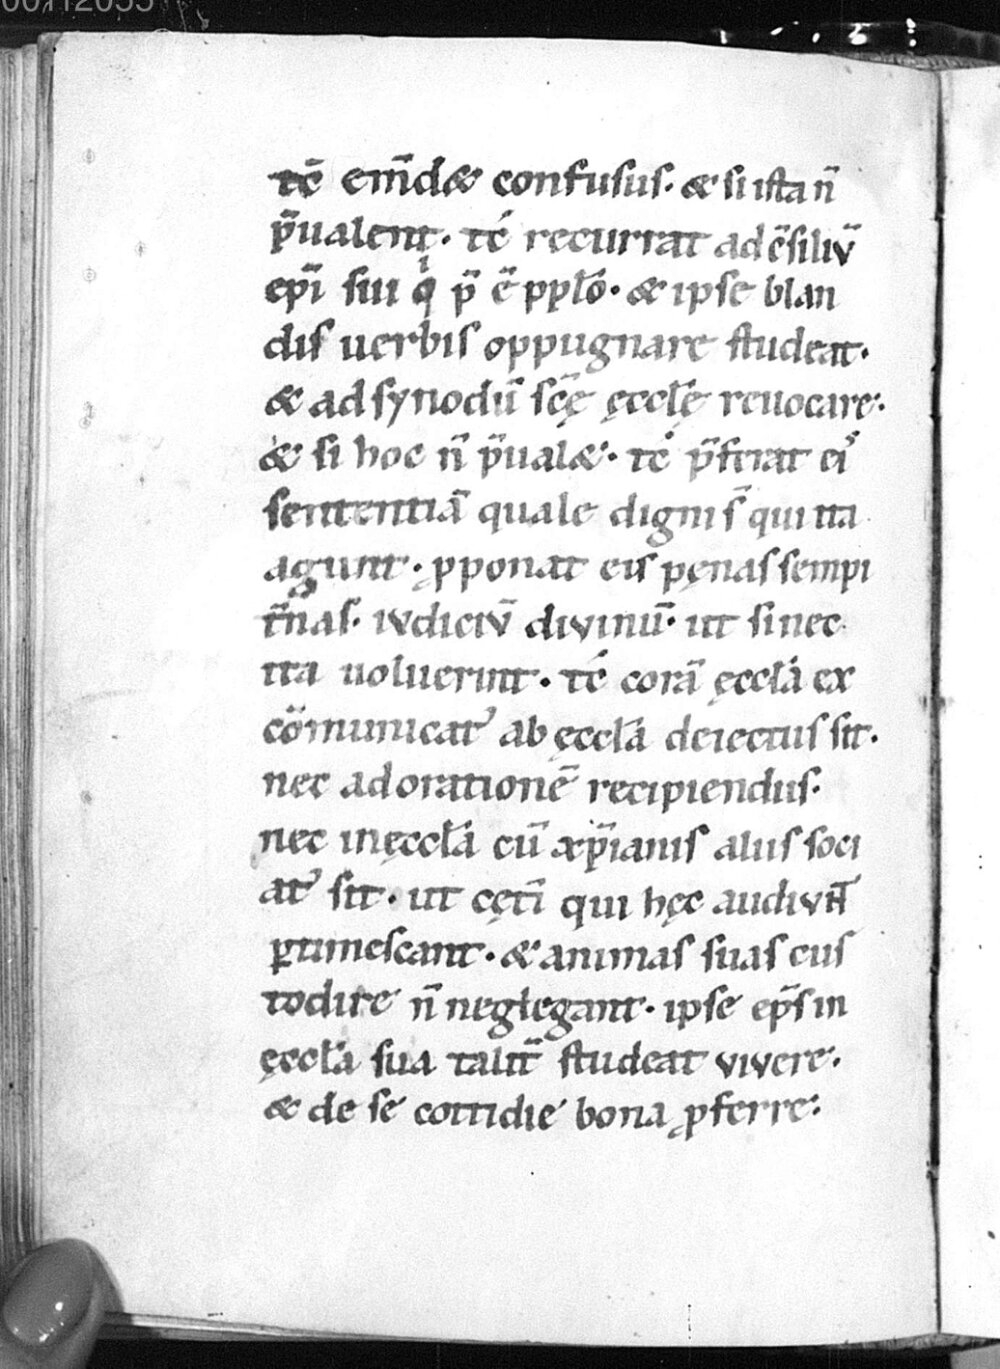 tc̄ em̄d& confusus· & si ista n̄
p̄ualent· tc̄ recurrat ad c̄siliv̄
ep̄i sui qͥ p̄ ē pplō· & ipse blan
dis uerbis oppugnare studeat·
& ad synodū sc̄ę ęccl̄ę reuocare·
& si hoc n̄ p̄ual&· tc̄ p̄ferat eiͥ
sententiā quale digni s̄ qui ita
agunt· pponat eis pęnas sempi
t̄nas· ivdiciv̄ divinū· ut si nec
ita uoluerint· tc̄ corā ęccl̄a ex
cōmunicat᷒ ab ęccl̄a deiectus sit·
nec ad orationē recipiendus·
nec in ęccl̄a cū xp̄ianis aliis soci
at᷒ sit· ut cęt̄i qui hęc audivn̄t
ꝑtimescant· & animas suas cus
todire n̄ neglegant· ipse ep̄s in
ęccl̄a sua talit̄ studeat vivere·
& de se cottidie bona ꝓferre·